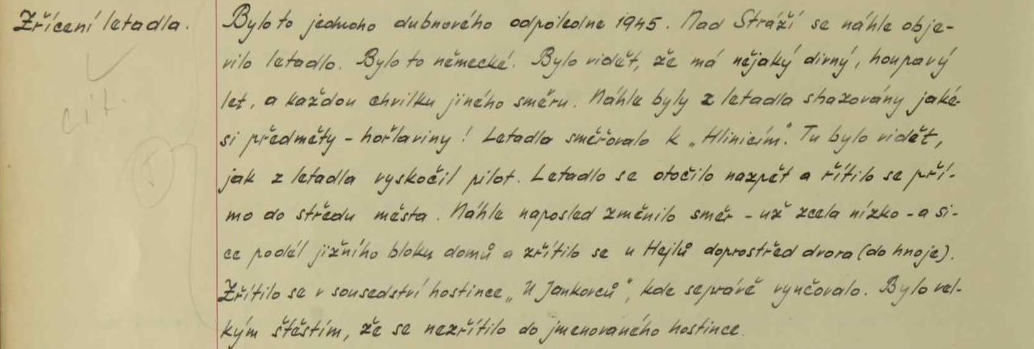 Zřícení letadla.
cit.
Bylo to jednoho dubnového odpoledne 1945. Nad Stráží se náhle obje-
vilo letadlo. Bylo to německé. Bylo vidět, že má nějaký divný, houpavý
let, a každou chvilku jiného směru. Náhle byly z letadla shazovány jaké-
si předměty - hořlaviny! Letadla směřovalo k „Hlinicím". Tu bylo vidět,
jak z letadla vyskočil pilot. Letadlo se otočilo nazpět a řítilo se pří-
mo do středu města. Náhle naposled změnilo směr - už zcela nízko - a si-
ce podél jižního bloku domů a zřítilo se u Hejlů doprostřed dvora (do hnoje).
Zřítilo se v sousedství hostince „U Jankovců", kde se právě vyučovalo. Bylo vel-
kým štěstím, že se nezřítilo do jmenovaného hostince.